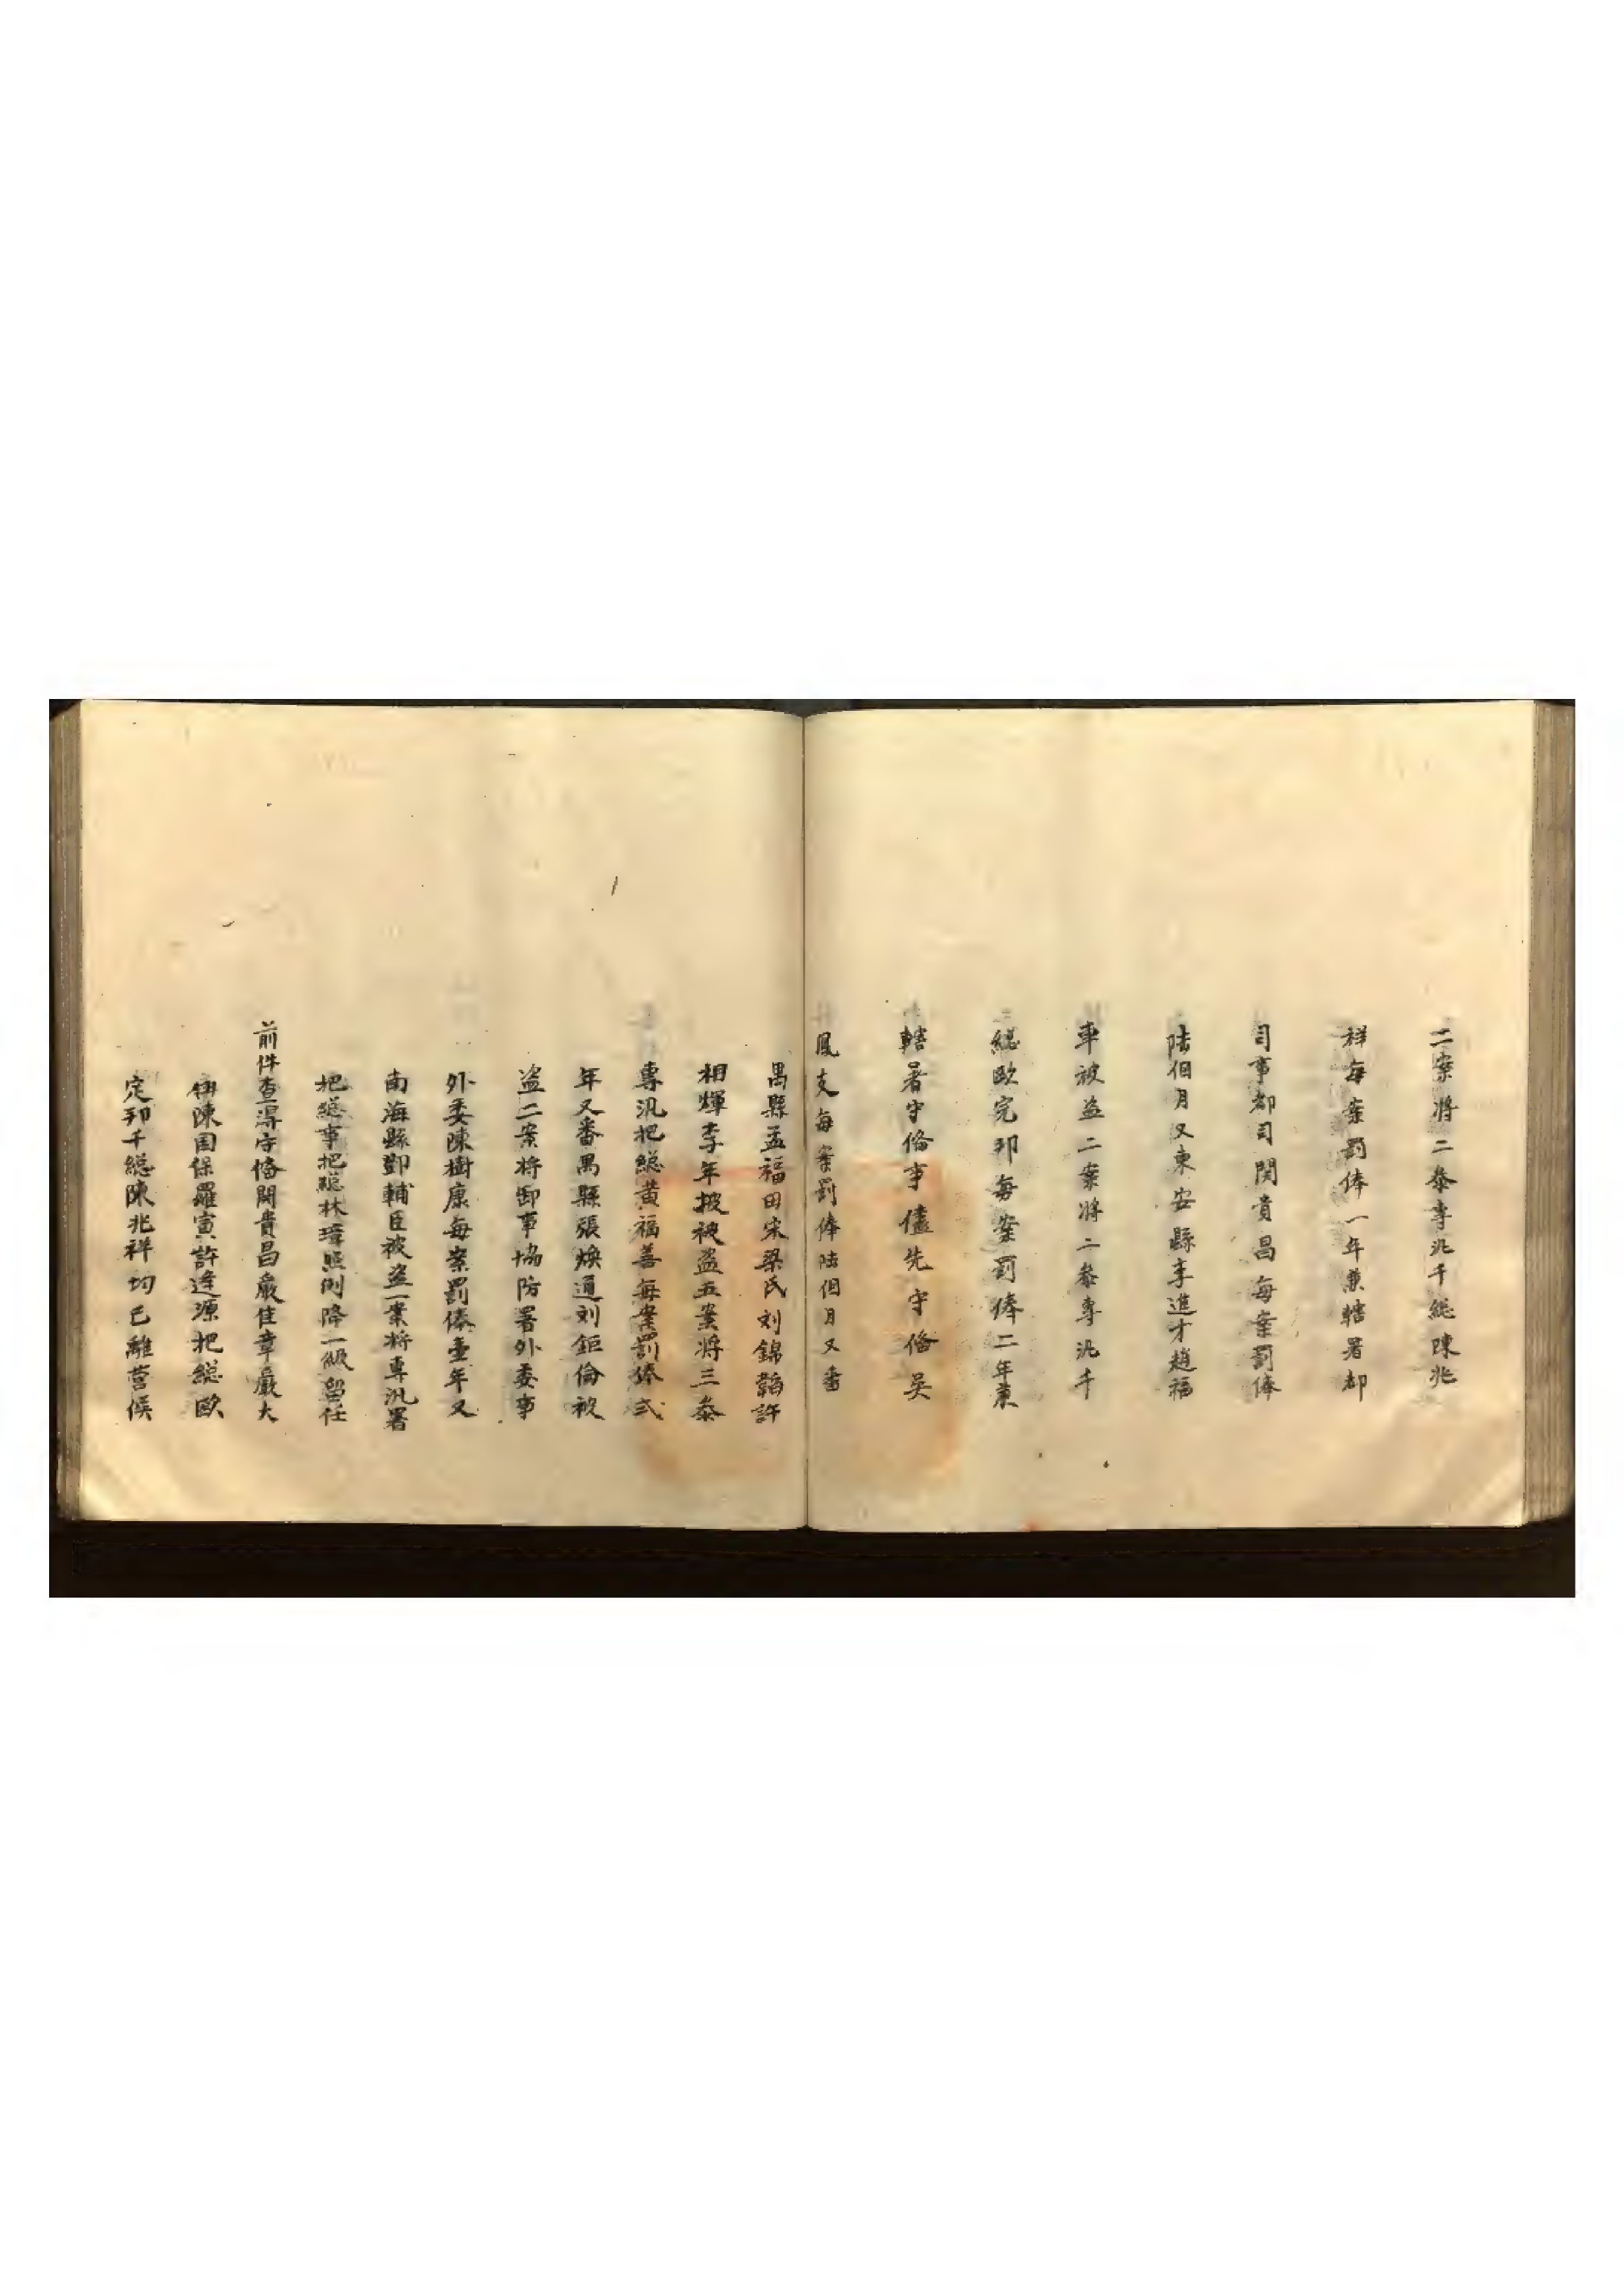 二案將二叅專汛千総陳兆
祥每案罰俸一年兼轄署都
司事都司関貴昌每案罰俸
陸個月又東安縣李進才趙福
車被盗二案將二叅專汛千
総歐定邦每案罰俸二年兼
轄署守俻事儘先守俻吳
鳳支每案罰俸陸個月又番
禺縣孟福田宋梁氏刘錦韜許
相輝李年披被盗五案將三叅
專汛把総黄福善每案罰俸弍
年又番禺縣張煥道刘鉅倫被
盗二案將卸事協防署外委事
外委陳樹康每案罰俸壹年又
南海縣鄧輔臣被盗一案將專汛署
把総事把総林璋照例降一級留任
前件查得守俻関貴昌嚴佳章嚴大
陳国保羅寅許逢源把総歐
定邦千総陳兆祥均已離營候